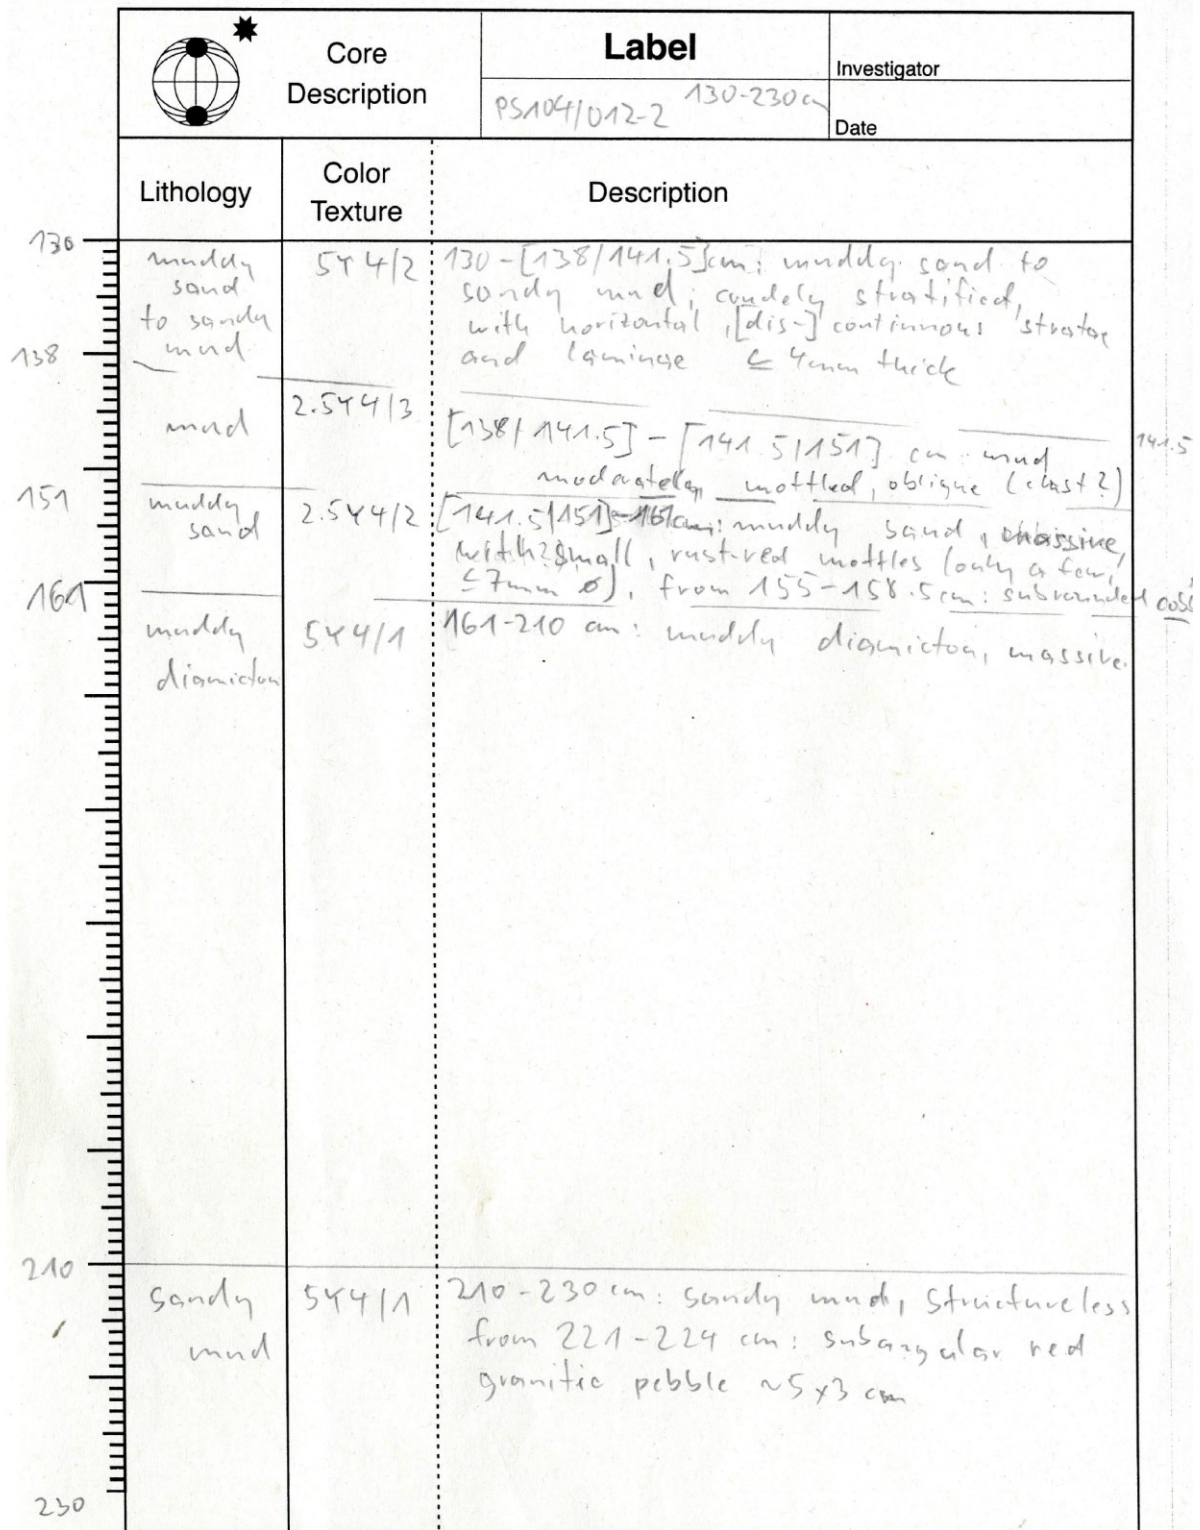 Core
Description
Label
PS104/012-2 130-230cm
Investigator
Date
Lithology
Color
Texture
Description
130
muddy
sand
to sandy
mud
5Y 4/2
130-[138/141.5]cm: muddy sand to
sandy mud; crudely stratified,
with horizontal, [dis-]continuous stratae
and laminae ≤ 4mm thick
138
mud
2.5Y 4/3
[138/141.5]-[141.5/151] cm mud
moderately mottled, oblique (clast?)
141.5
151
muddy
sand
2.5Y 4/2
[141.5/151]-161cm: muddy sand, massive,
with small, rust-red mottles (only a few,
≤7mm ø), from 155-158.5cm: subrounded
161
muddy
diamicton
5Y 4/1
161-210 cm: muddy diamicton, massive.
210
sandy
mud
5Y 4/1
210-230 cm: sandy mud, structureless
from 221-224 cm: subangular red
granitic pebble ~5x3 cm
230